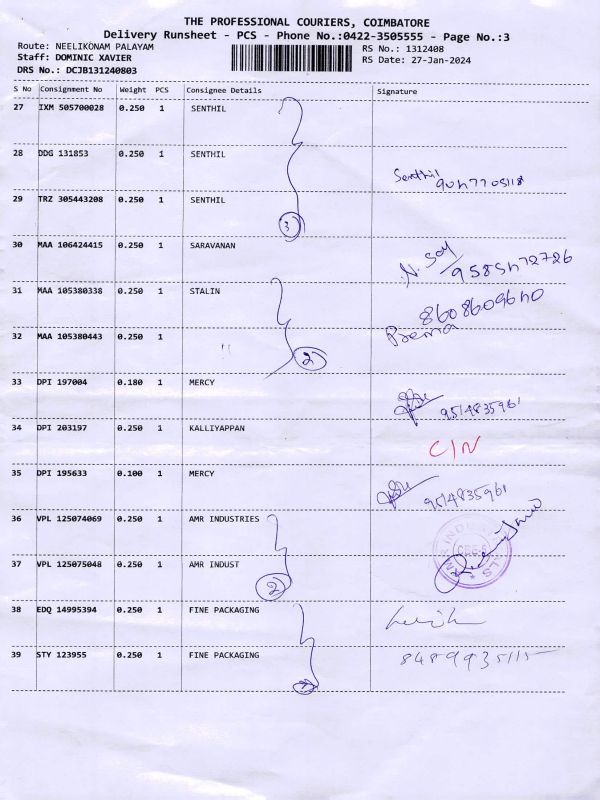 THE PROFESSIONAL COURIERS, COIMBATORE
Delivery Runsheet - PCS - Phone No.:0422-3505555 - Page No.:3
Route: NEELIKONAM PALAYAM
RS No.: 1312408
Staff: DOMINIC XAVIER
RS Date: 27-Jan-2024
DRS No.: DCJB131240803
S No Consignment No Weight PCS Consignee Details Signature
27 IXM 505700028 0.250 1 SENTHIL
28 DDG 131853 0.250 1 SENTHIL
Senthil
29 TRZ 305443208 0.250 1 SENTHIL
3
30 MAA 106424415 0.250 1 SARAVANAN
31 MAA 105380338 0.250 1 STALIN
32 MAA 105380443 0.250 1 "
Prema
2
33 DPI 197004 0.180 1 MERCY
9514835961
34 DPI 203197 0.250 1 KALLIYAPPAN
C/N
35 DPI 195633 0.100 1 MERCY
9514835961
36 VPL 125074069 0.250 1 AMR INDUSTRIES
37 VPL 125075048 0.250 1 AMR INDUST
2
38 EDQ 14995394 0.250 1 FINE PACKAGING
39 STY 123955 0.250 1 FINE PACKAGING
8489935115